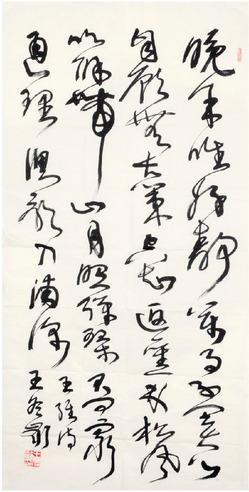 晚年唯好靜萬事不關心
自顧無長策空知返舊林松風
吹解帶山月照彈琴君問窮
通理漁歌入浦深
王維詩